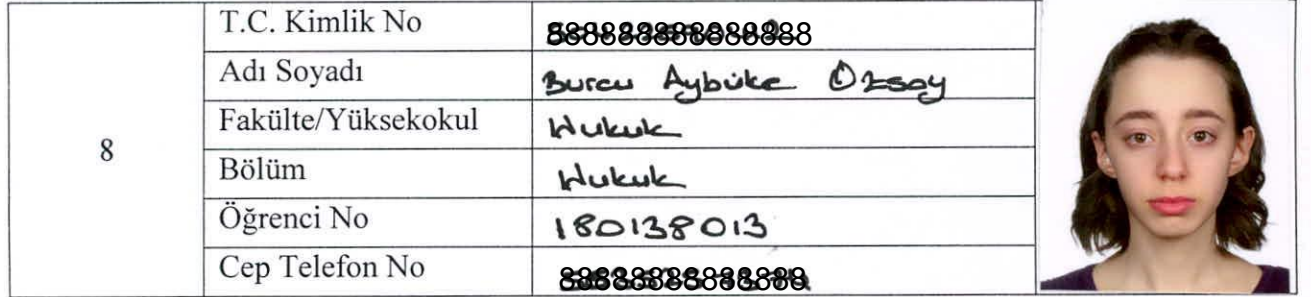 8
T.C. Kimlik No
Adı Soyadı Burcu Aybüke Özsoy
Fakülte/Yüksekokul Hukuk
Bölüm Hukuk
Öğrenci No 180138013
Cep Telefon No